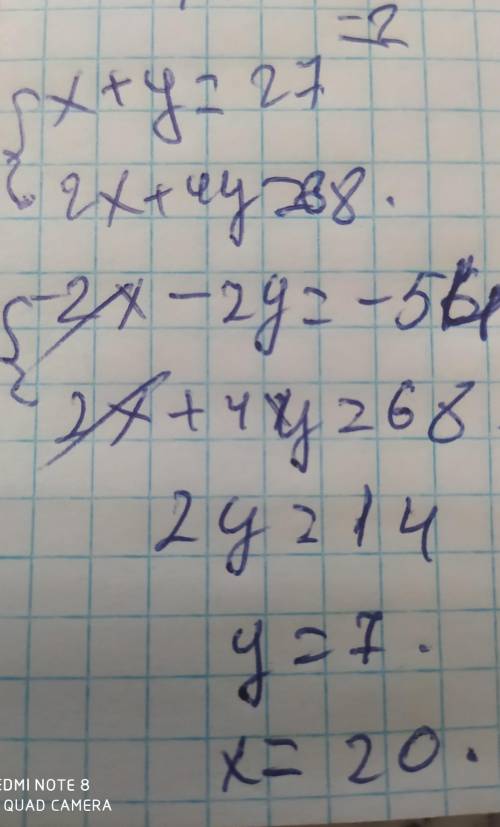 -2
x + y = 27
2x + 4y = 68.
-2x - 2y = -54
2x + 4y = 68
2y = 14
y = 7.
x = 20.
REDMI NOTE 8
QUAD CAMERA